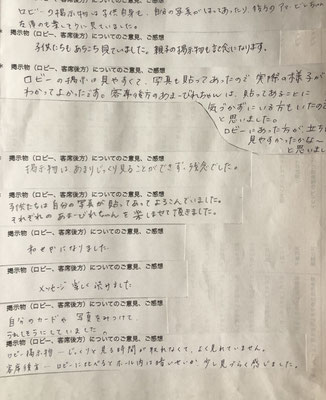 ロビーの掲示物は子供自身も
自分の写真が
掲示物（ロビー、客席後方）についてのご意見、ご感想
子供たちもあちこち見ていました。親子の掲示物も記念になります。
掲示物（ロビー、客席後方）についてのご意見、ご感想
ロビーの掲示は見やすくて、写真も貼ってあったので実際の様子が
わかってよかったです。客席の後方のあまーびれちゃんは、貼ってあることに
気づかずにいる方もいたので
と思いました。
ロビーにあった方が
見やすかったかな～
と思いました
掲示物（ロビー、客席後方）についてのご意見、ご感想
掲示物は、あまりじっくり見ることができず、残念でした。
掲示物（ロビー、客席後方）についてのご意見、ご感想
子供たちは自分の写真が貼ってあってよろこんでいました。
それぞれのあまーびれちゃんを楽しませて頂きました。
掲示物（ロビー、客席後方）についてのご意見、ご感想
和やかになりました
掲示物（ロビー、客席後方）についてのご意見、ご感想
メッセージ楽しく読めました
掲示物（ロビー、客席後方）についてのご意見、ご感想
自分のカードや写真をみつけて、
うれしそうにしていました。
ロビー掲示物ーじっくりと見る時間が取れなくて、よく見れていません。
客席後方ーロビーに比べるとホール内は暗いせいか少し見づらく感じました。